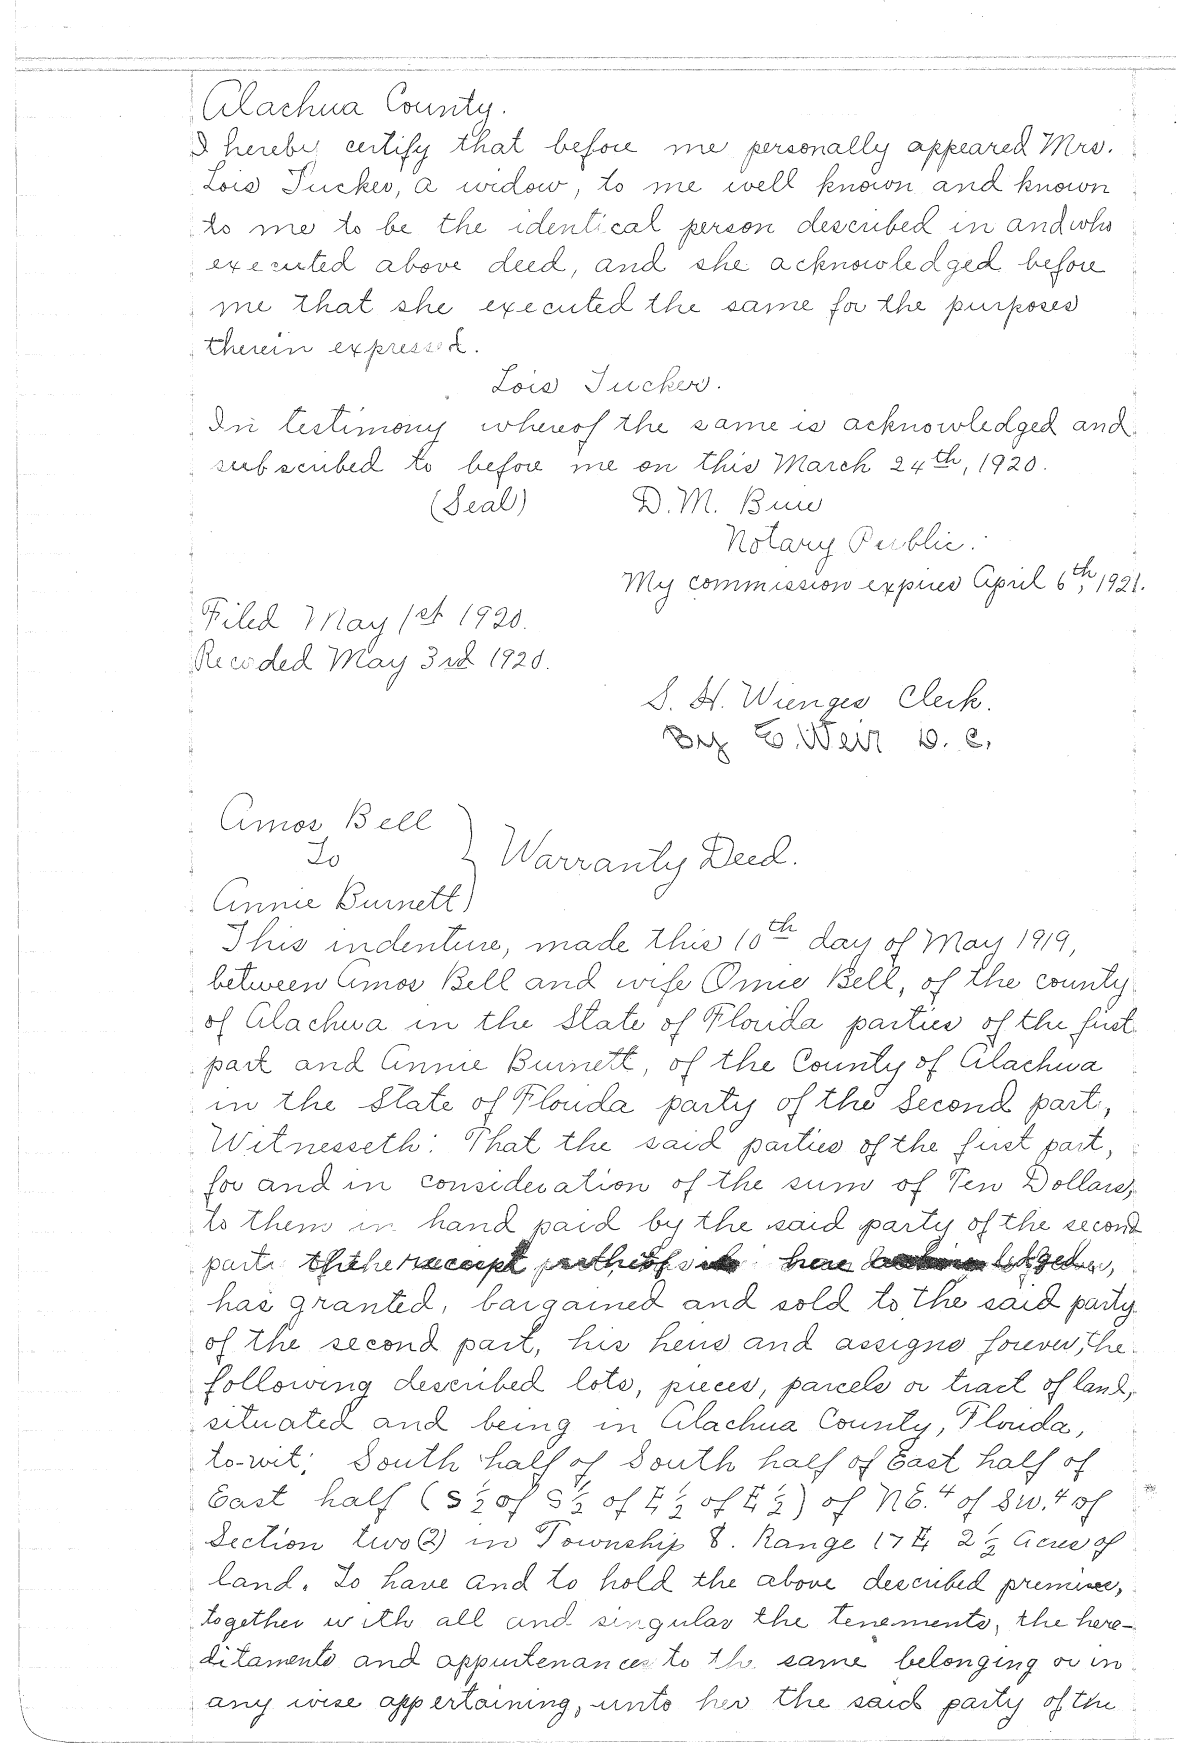 Alachua County.
I hereby certify that before me personally appeared Mrs.
Lois Tucker, a widow, to me well known and known
to me to be the identical person described in and who
executed above deed, and she acknowledged before
me that she executed the same for the purposes
therein expressed.
Lois Tucker.
In testimony whereof the same is acknowledged and
subscribed to before me on this March 24th, 1920.
(Seal) D. M. Buie
Notary Public.
My commission expires April 6th, 1921.
Filed May 1st 1920.
Recorded May 3rd 1920.
S. H. Wienges Clerk.
By E. Weir D. C.
Amos Bell
To
Warranty Deed.
Annie Burnett
This indenture, made this 10th day of May 1919,
between Amos Bell and wife Omie Bell, of the county
of Alachua in the State of Florida parties of the first
part and Annie Burnett, of the County of Alachua
in the State of Florida party of the Second part,
Witnesseth: That the said parties of the first part,
for and in consideration of the sum of Ten Dollars,
to them in hand paid by the said party of the second
part receipt
has granted, bargained and sold to the said party
of the second part, his heirs and assigns forever, the
following described lots, pieces, parcels or tract of land,
situated and being in Alachua County, Florida,
to-wit; South half of South half of East half of
East half (S ½ of S ½ of E ½ of E ½) of N E. 4 of S w. 4 of
Section two (2) in Township 8. Range 17 E 2 ½ Acres of
land. To have and to hold the above described premises,
together with all and singular the tenements, the here-
ditaments and appurtenances to the same belonging or in
any wise appertaining, unto her the said party of the